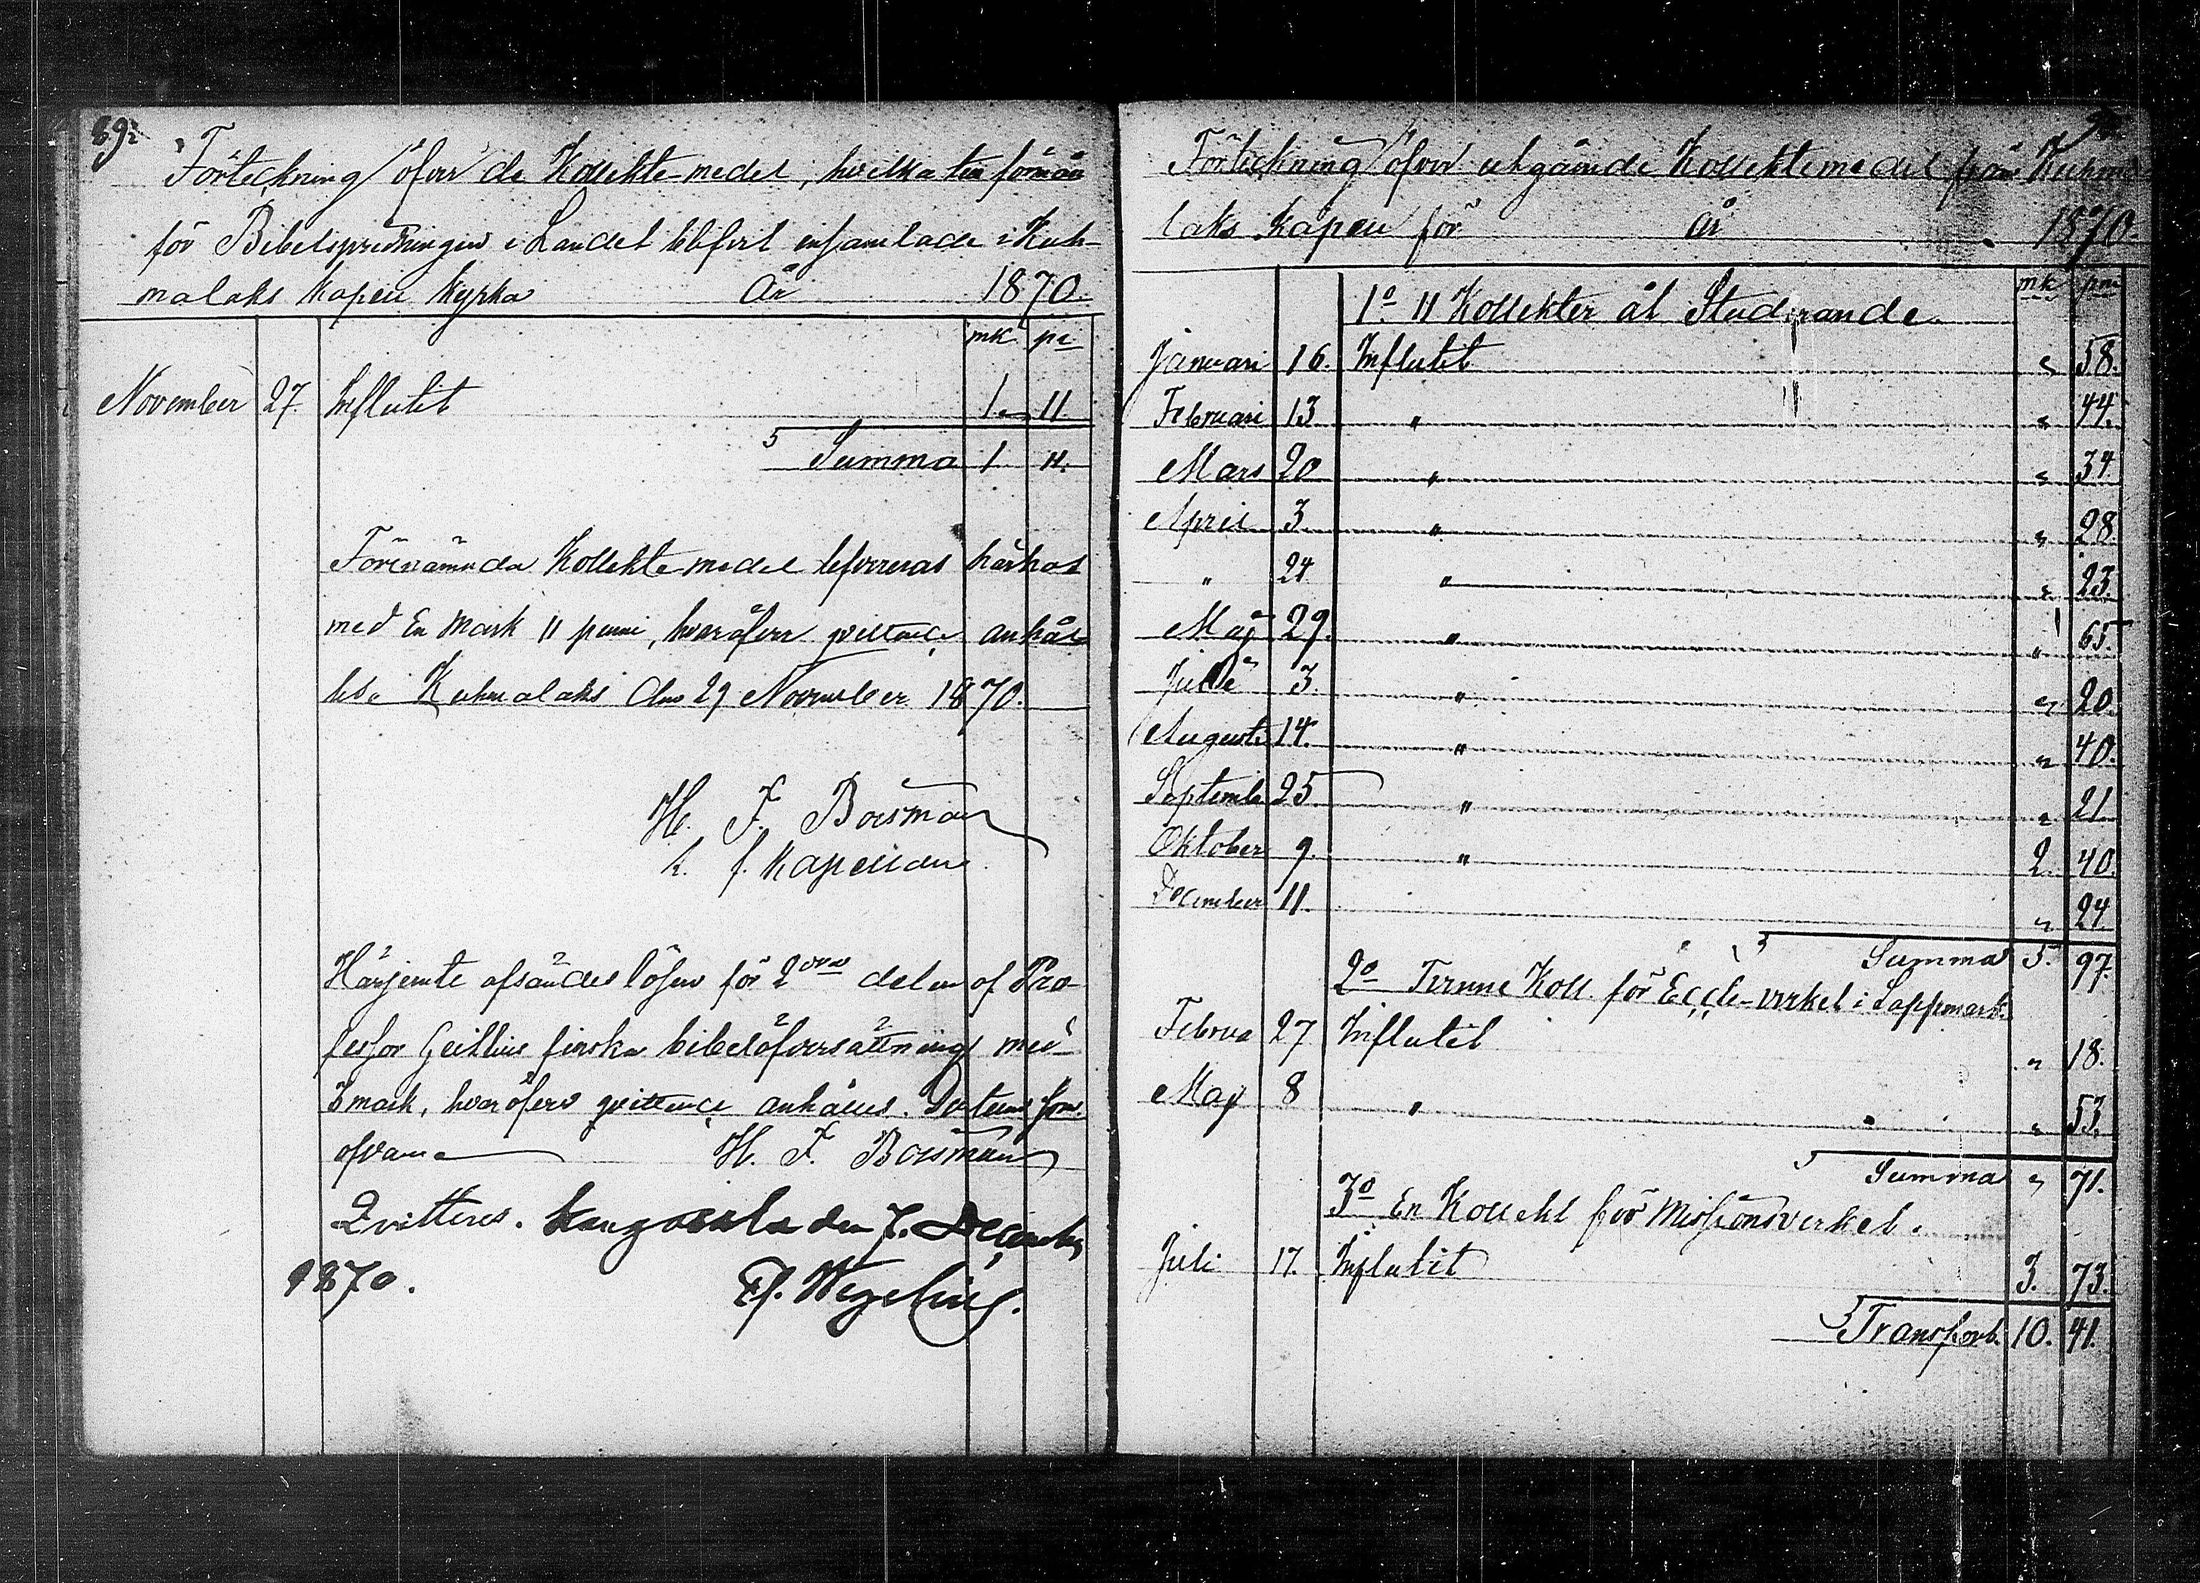 89.
Förteckning öfver de Kollektemedel, hvilka till förmån
för Bibelspridningen i Landet blifvit insamlade i Kuh-
malaks Kapell Kyrka År 1870.
mk pi
November 27. Influtit 1. 11.
Summa 1 11.
Förenämnda Kollektemedel beforreras härhos
med En mark 11 penni, hvaröfver qvittence anhål-
les. Kuhmalaks den 29 November 1870.
H. F. Boisman
k. f. Kapellan.
Härjemte afsändes lösen för 2dra delen af Pro-
fessor Geitlins finska bibelöfversättning med
3 mark, hvaröfver qvittence anhålles. Datum som
ofvan H. F. Boisman
Qvitteras. Kangasala den 7. December
1870. Fr. Wegelius.
Förteckning öfver utgående Kollektemedel från Kuhma-
laks Kapell för år 1870.
mk pni
1o 11 Kollekter åt Studerande.
Januari 16. Influtit " 58.
Februari 13 " " 44.
Mars 20 " " 34
April 3. " " 28.
" 24 " " 23.
Maj 29. " " 65.
Juli 3. " " 20.
Augusti 14. " " 40.
Septembe 25 " " 21.
Oktober 9. " 2. 40.
December 11. " 24.
Summa 5. 97.
2o Tvenne Koll. för Eccle-verket i Lappmark.
Februa 27 Influtit " 18.
Maj 8 " " 53.
Summa " 71.
3o En Kollekt för Missionsverket.
Juli 17. Influtit 3. 73.
Transport. 10. 41.